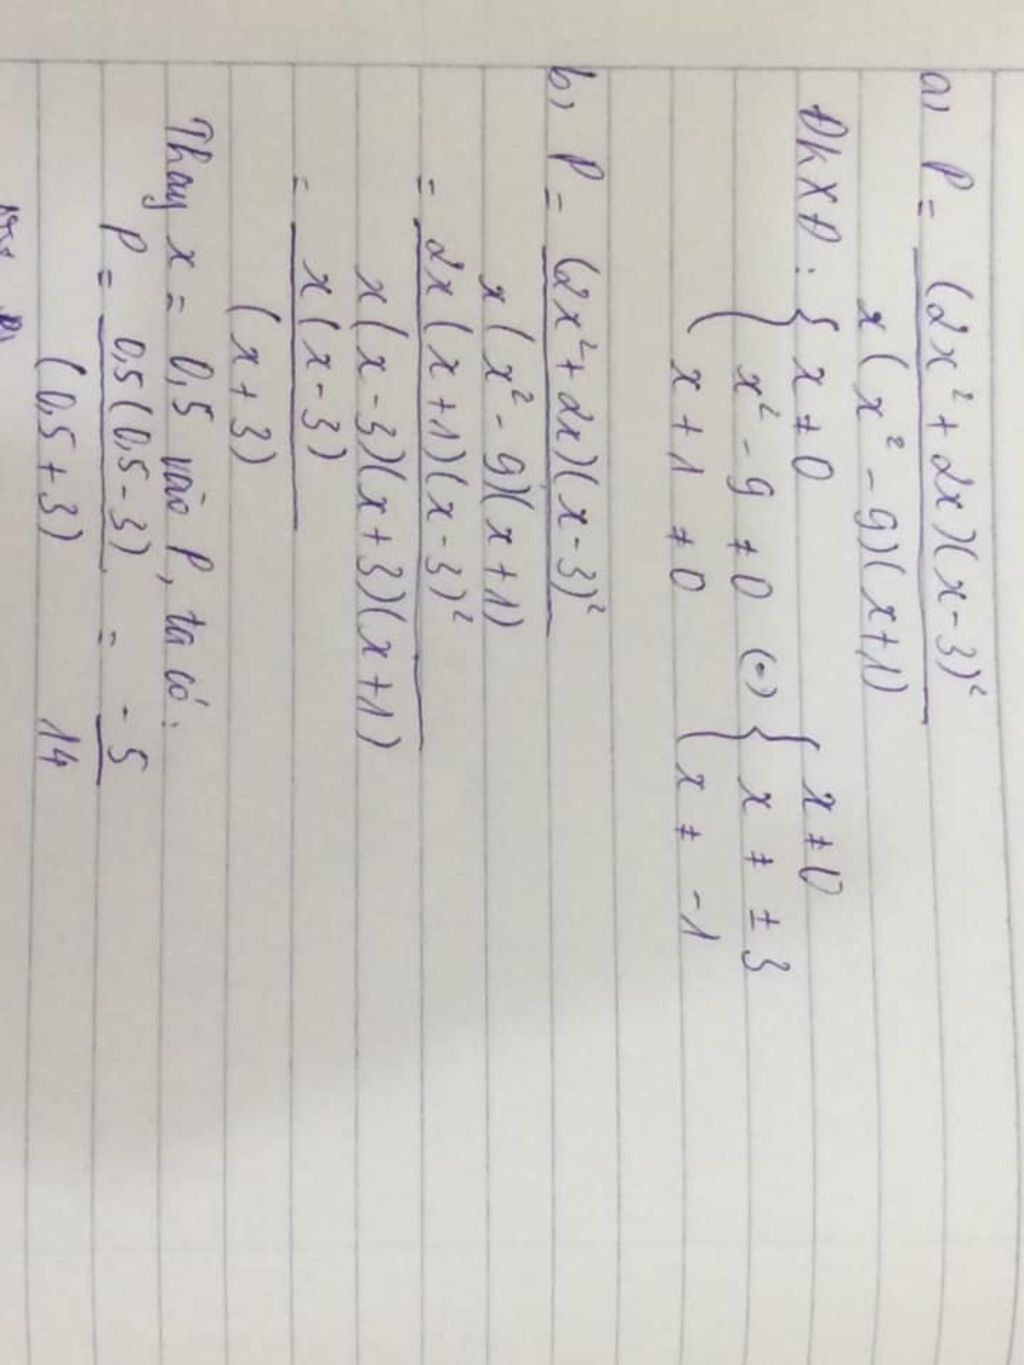 a) P = (2x² + 2x)(x - 3)²
x(x² - 9)(x+1)
ĐKXĐ: { x ≠ 0
x² - 9 ≠ 0 (=) { x ≠ 0
x + 1 ≠ 0
x ≠ ±3
x ≠ -1
b) P = (2x² + 2x)(x - 3)²
x(x² - 9)(x + 1)
= 2x(x + 1)(x - 3)²
x(x - 3)(x + 3)(x + 1)
= x(x - 3)
(x + 3)
Thay x = 0,5 vào P, ta có:
P = 0,5(0,5 - 3) = -5
(0,5 + 3) 14